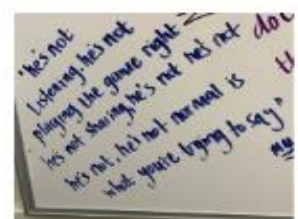 "he's not
listening, he's not
playing the game right
he's not sharing, he's not he's not
he's not, he's not normal is
what you're trying to say"